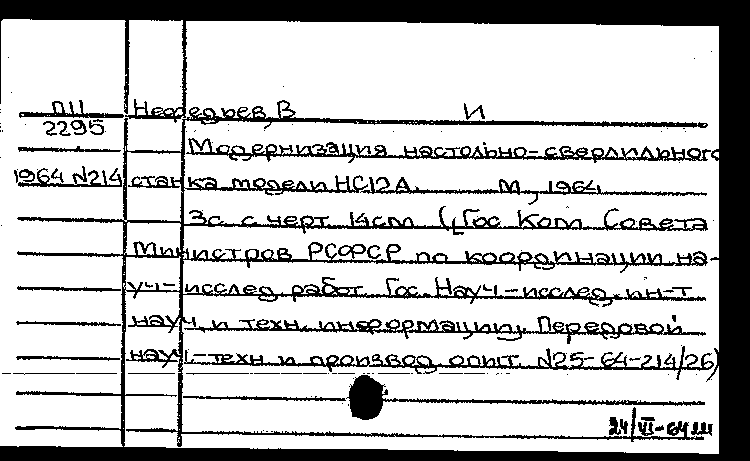 ПII Нефедьев, В И
2295
Модернизация настольно-сверлильного
1964 N214 станка модели НС12А. М, 1964
3с. с черт. 14см (Гос Ком Совета
Министров РСФСР по координации на-
уч-исслед. работ. Гос. Науч-исслед. ин-т
науч. и техн. информации. Передовой
науч.-техн и производ. опыт. N25-64-214/26)
24/VI-64